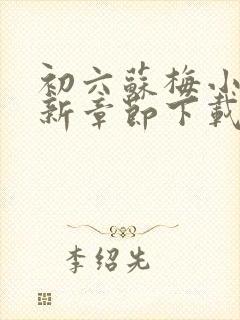 初六蘇梅小
新章節下載
李绍先